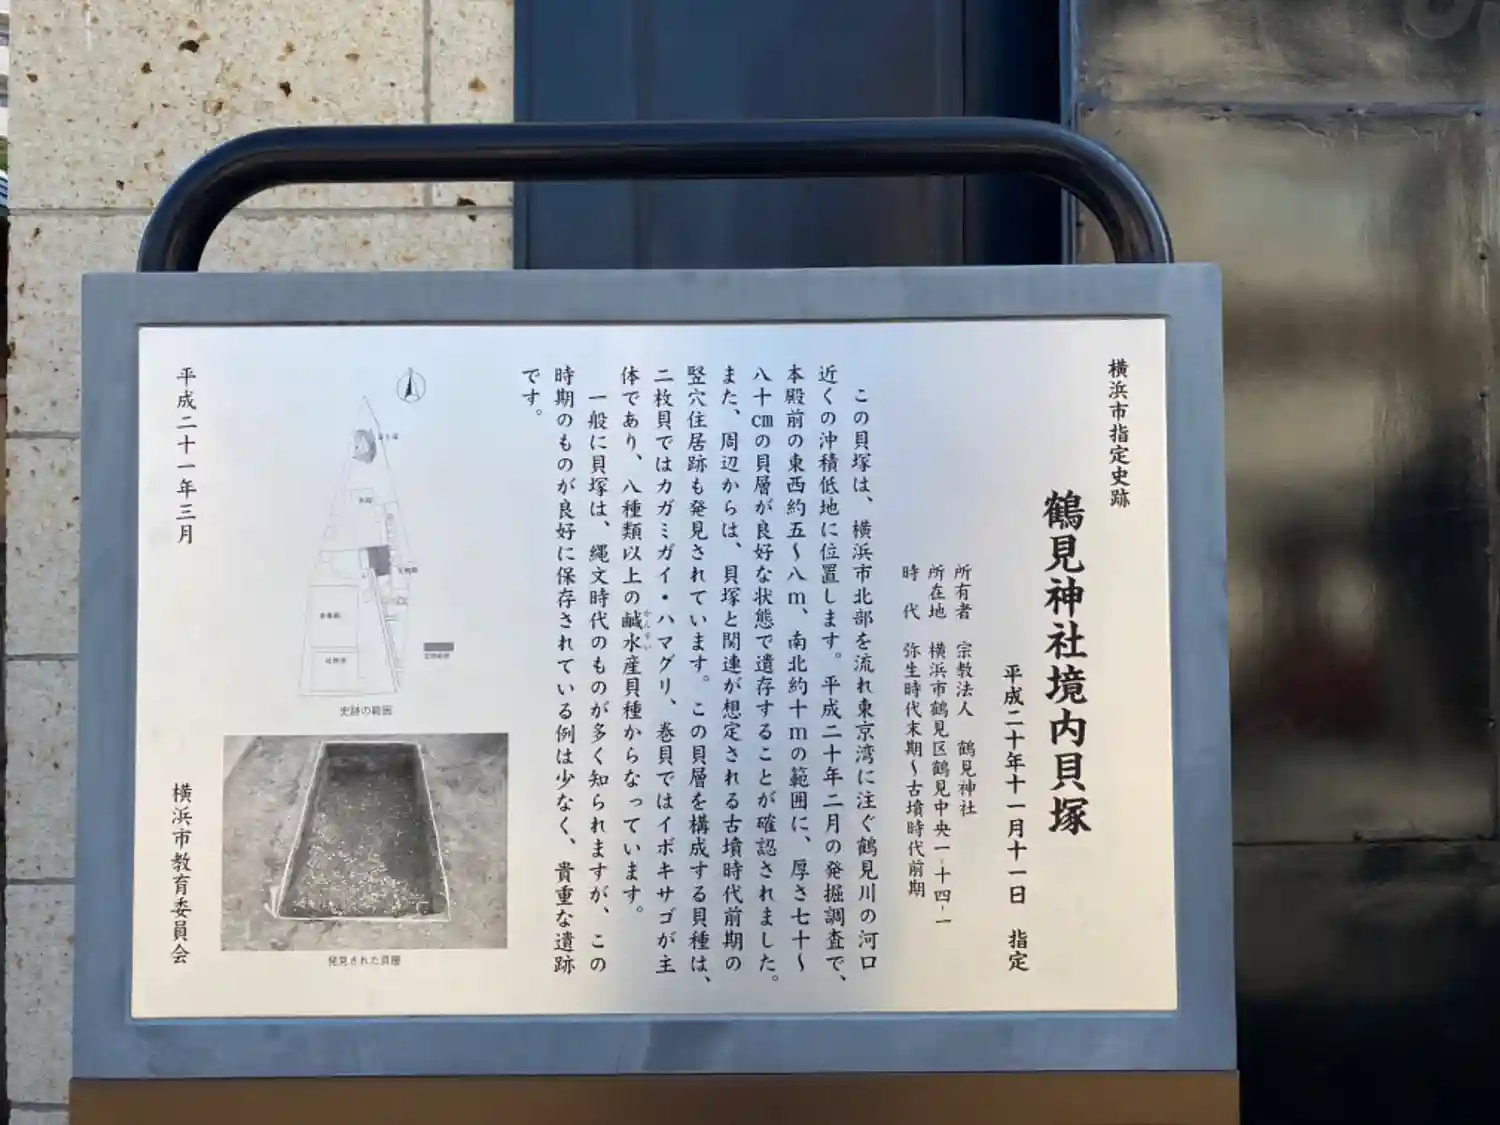 横浜市指定史跡
鶴見神社境内貝塚
平成二十年十一月十一日　指定
所有者　宗教法人　鶴見神社
所在地　横浜市鶴見区鶴見中央一-十四-一
時　代　弥生時代末期～古墳時代前期
この貝塚は、横浜市北部を流れ東京湾に注ぐ鶴見川の河口
近くの沖積低地に位置します。平成二十年二月の発掘調査で、
本殿前の東西約五～八ｍ、南北約十ｍの範囲に、厚さ七十～
八十㎝の貝層が良好な状態で遺存することが確認されました。
また、周辺からは、貝塚と関連が想定される古墳時代前期の
竪穴住居跡も発見されています。この貝層を構成する貝種は、
二枚貝ではカガミガイ・ハマグリ、巻貝ではイボキサゴが主
体であり、八種類以上の鹹水産貝種からなっています。
かんすい
一般に貝塚は、縄文時代のものが多く知られますが、この
時期のものが良好に保存されている例は少なく、貴重な遺跡
です。
史跡の範囲
発見された貝層
平成二十一年三月
横浜市教育委員会